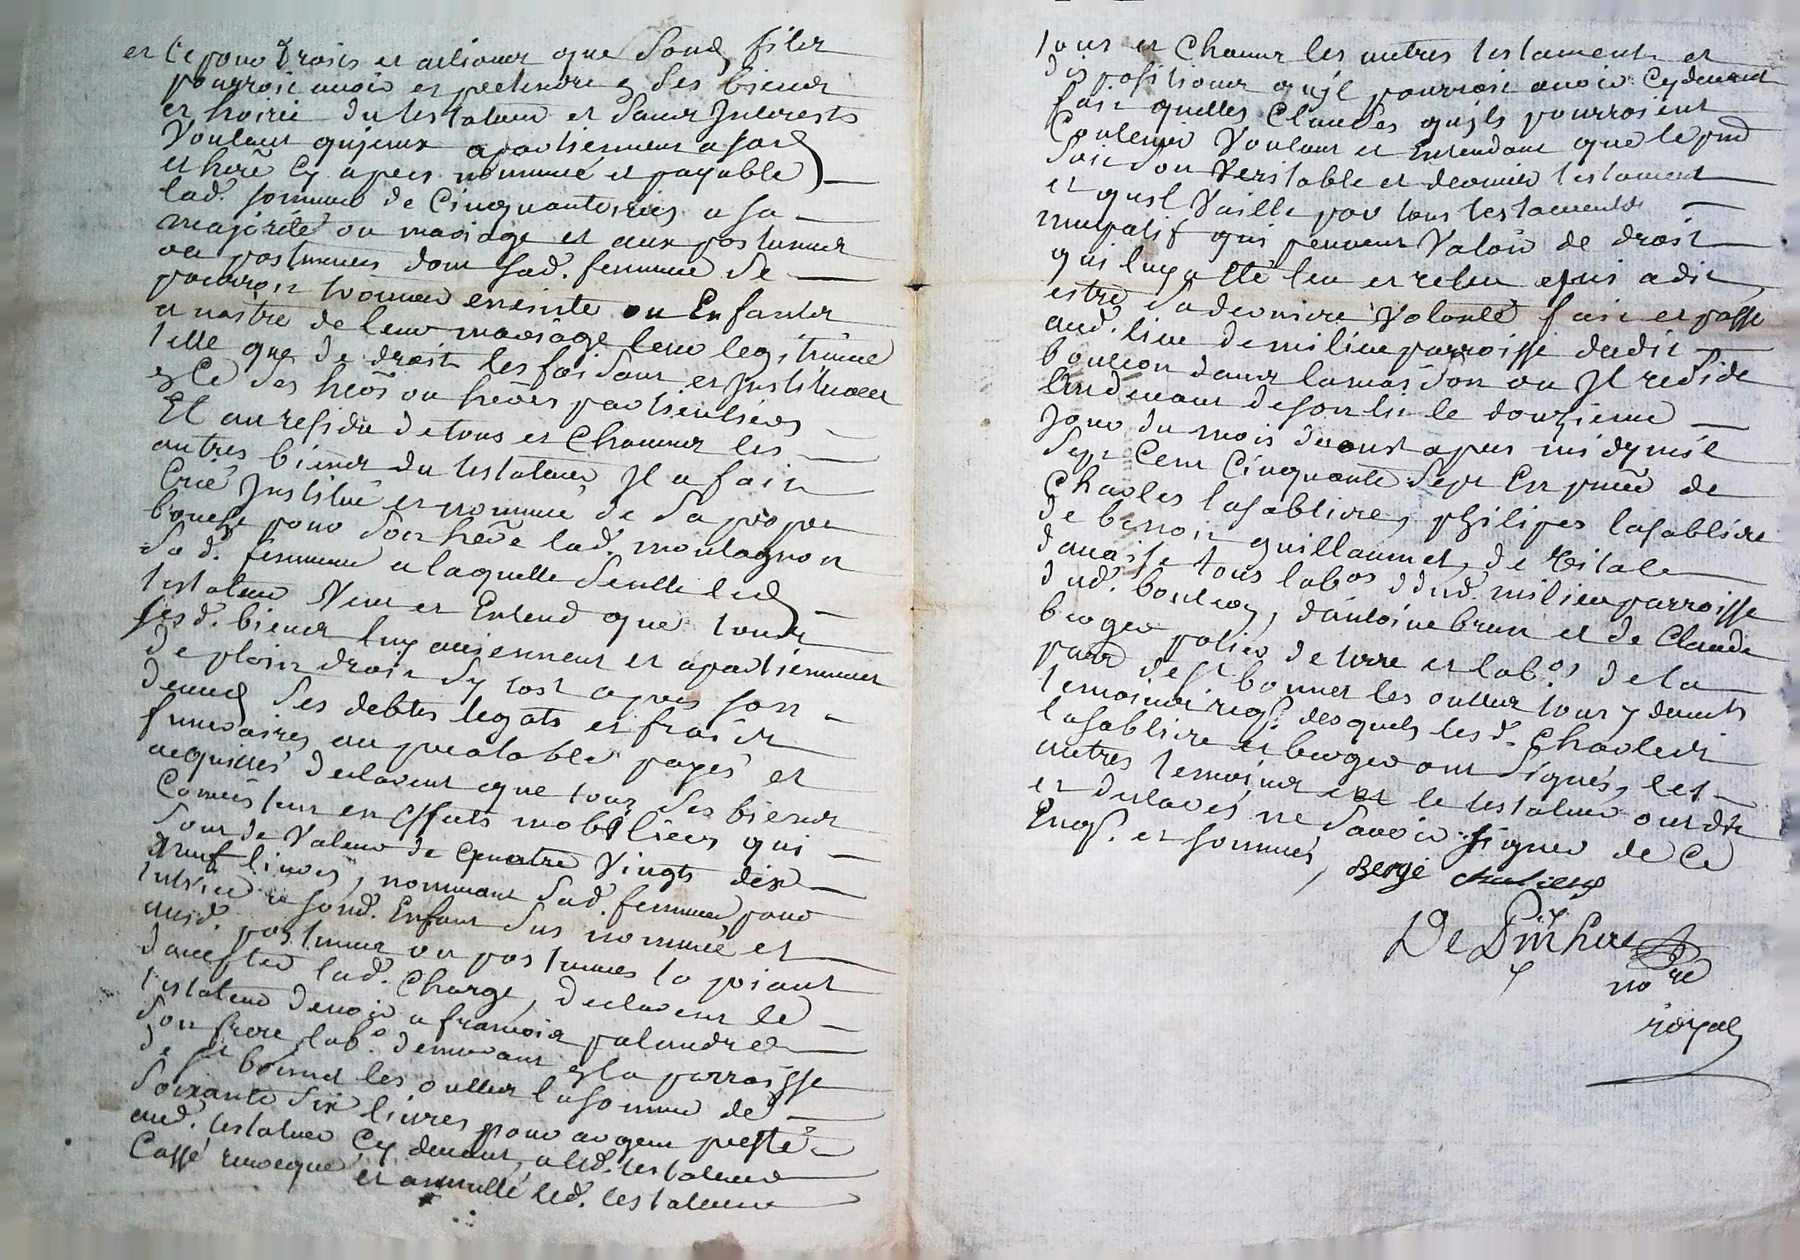 et ce pour droits et actions que sond. filer
pourroit avoir et pretendre es ses biens
et hoirie du testateur et sans Interests
Voulant qu'jceux apartiennent a sad.
et here Cy apres nommeé et payable
lad. somme de Cinquante a sa
majorité ou mariage et aux postumes
ou postumes dont sad. femme se
pourroit trouver enceinte ou Enfanter
a naitre de leur mariage leur legitime
telle que de droit les faisant et Instituant
e Ce ses heõs ou heõres particuliers
Et au residu de tous et Chacuns les
autres biens du testateur Jl a fait
Creé Institué et nommé de sa propre
bouche pour son heõe lad. montagnon
sa d. femme a laquelle seulle led.
testateur Veut et Entend que tous
sesd. biens luy aviennent et apartiennent
de plain droit sy tost apres son
deced. ses debtes legats et frais
funeraires au prealable payés et
acquittés declarant que tous ses biens
Consistent en effets mobiliers qui
sont de Valeur de quatre Vingts dix
neuf livres, nommant sad. femme pour
tutrice a sond. Enfant sus nommé et
ausd. postumes ou postumes la priant
daccepter lad. Charge, declarant le
testateur devoir a francois palandre
son frere lab.r demeurant e la parroisse
de s.t bonnet les oulles la somme de
soixante six livres pour argent presté
aud. testateur Cy devant, a led. testateur
Cassé revoqué et annullé led. testateur
tous et Chacuns les autres testaments et
dispositions qujl pourroit avoir Cydevant
fait quelles Clauses qujls pourroient
Contenir Voulant et Entendant que le pnt
soit son Veritable et dernier testament
et qujl Vaille par tous testaments
nuncupatif qui peuvent Valoir de droit
qui luy a eté leu et releu et a dit
estre sa derniere Volonté fait et passé
aud. lieu de milieu parroisse dudit
boucieu dans la maison ou Jl reside
le douzieme
Jour du mois daoust apres midy mil
sept Cent Cinquante sept En pnce de
Charles lasabliere, philipes lasabliere
de benoit guillaumet, de Vitale
tous lab.rs dud. milieu parroisse
dud. boucieu, dantoine brun et de Claude
berger potier de terre et lab.r de la
parr. de s.t bonnet les oulles tous
temoins req.s desquels lesd. Charles
lasabliere et berger ont signés, les
autres temoins et le testateur ont dit
et declarés ne savoir signer de Ce
Enq.s et sommés,
Bergé
no.re
royal